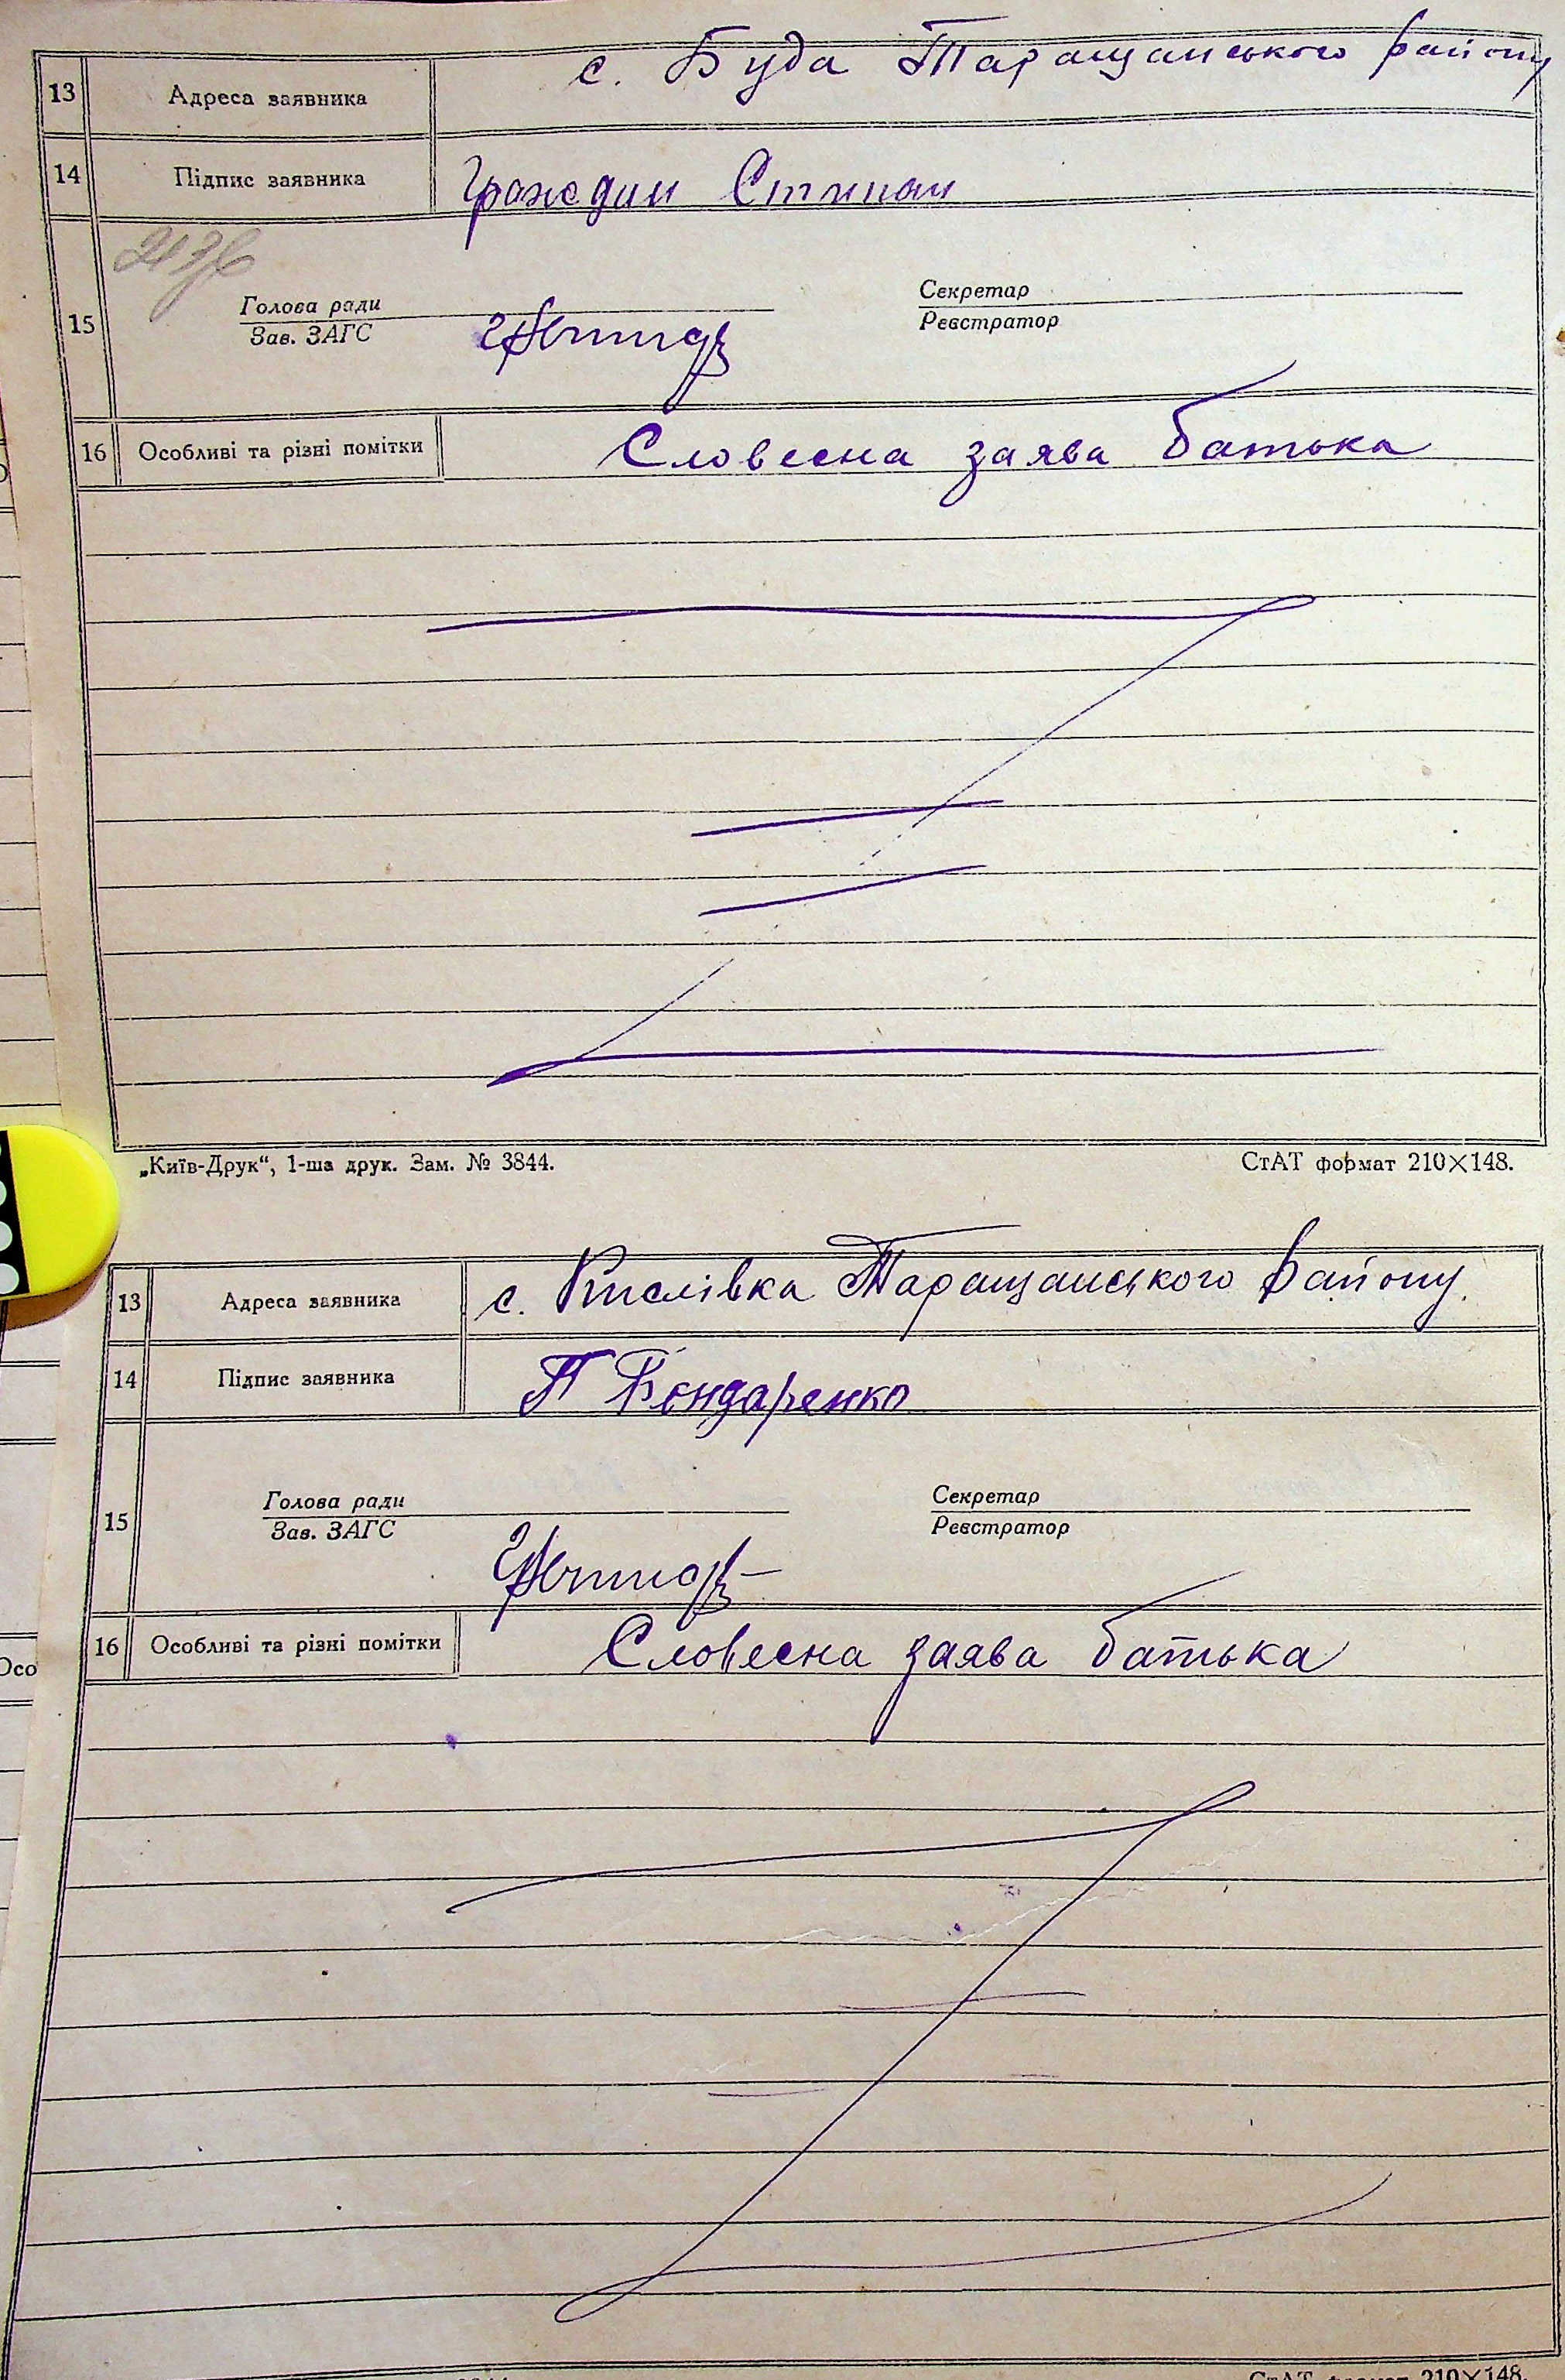 с. Буда Таращанського району
13 Адреса заявника
14 Підпис заявника
Граждан Степан
15
Голова ради
Зав. ЗАГС
Секретар
Реєстратор
16 Особливі та різні помітки Словесна заява батька
„Київ-Друк“, 1-ша друк. Зам. № 3844.
СтАТ формат 210×148.
13 Адреса заявника с. Кислівка Таращанського району
14 Підпис заявника П Бондаренко
15
Голова ради
Зав. ЗАГС
Секретар
Реєстратор
16 Особливі та різні помітки Словесна заява батька
Осо
СтАТ формат 210×148.